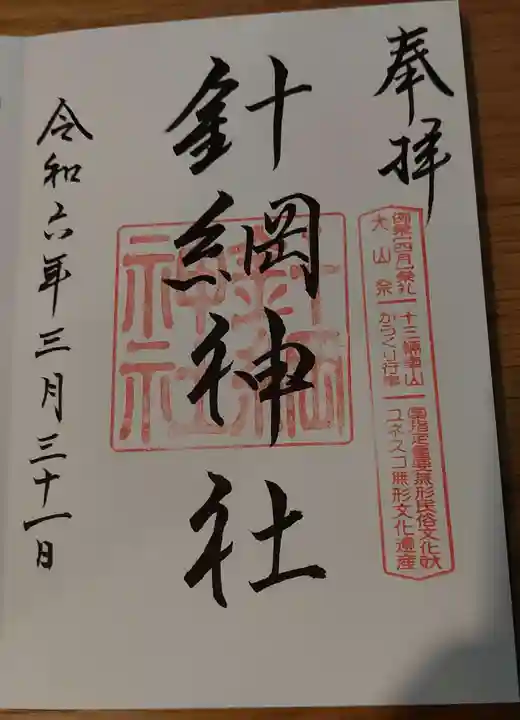 奉拝
例祭四月祭礼
犬山祭
十三輛車山
からくり行事
国指定重要無形民俗文化財
ユネスコ無形文化遺産
針綱神社
針綱
神社
令和六年三月三十一日